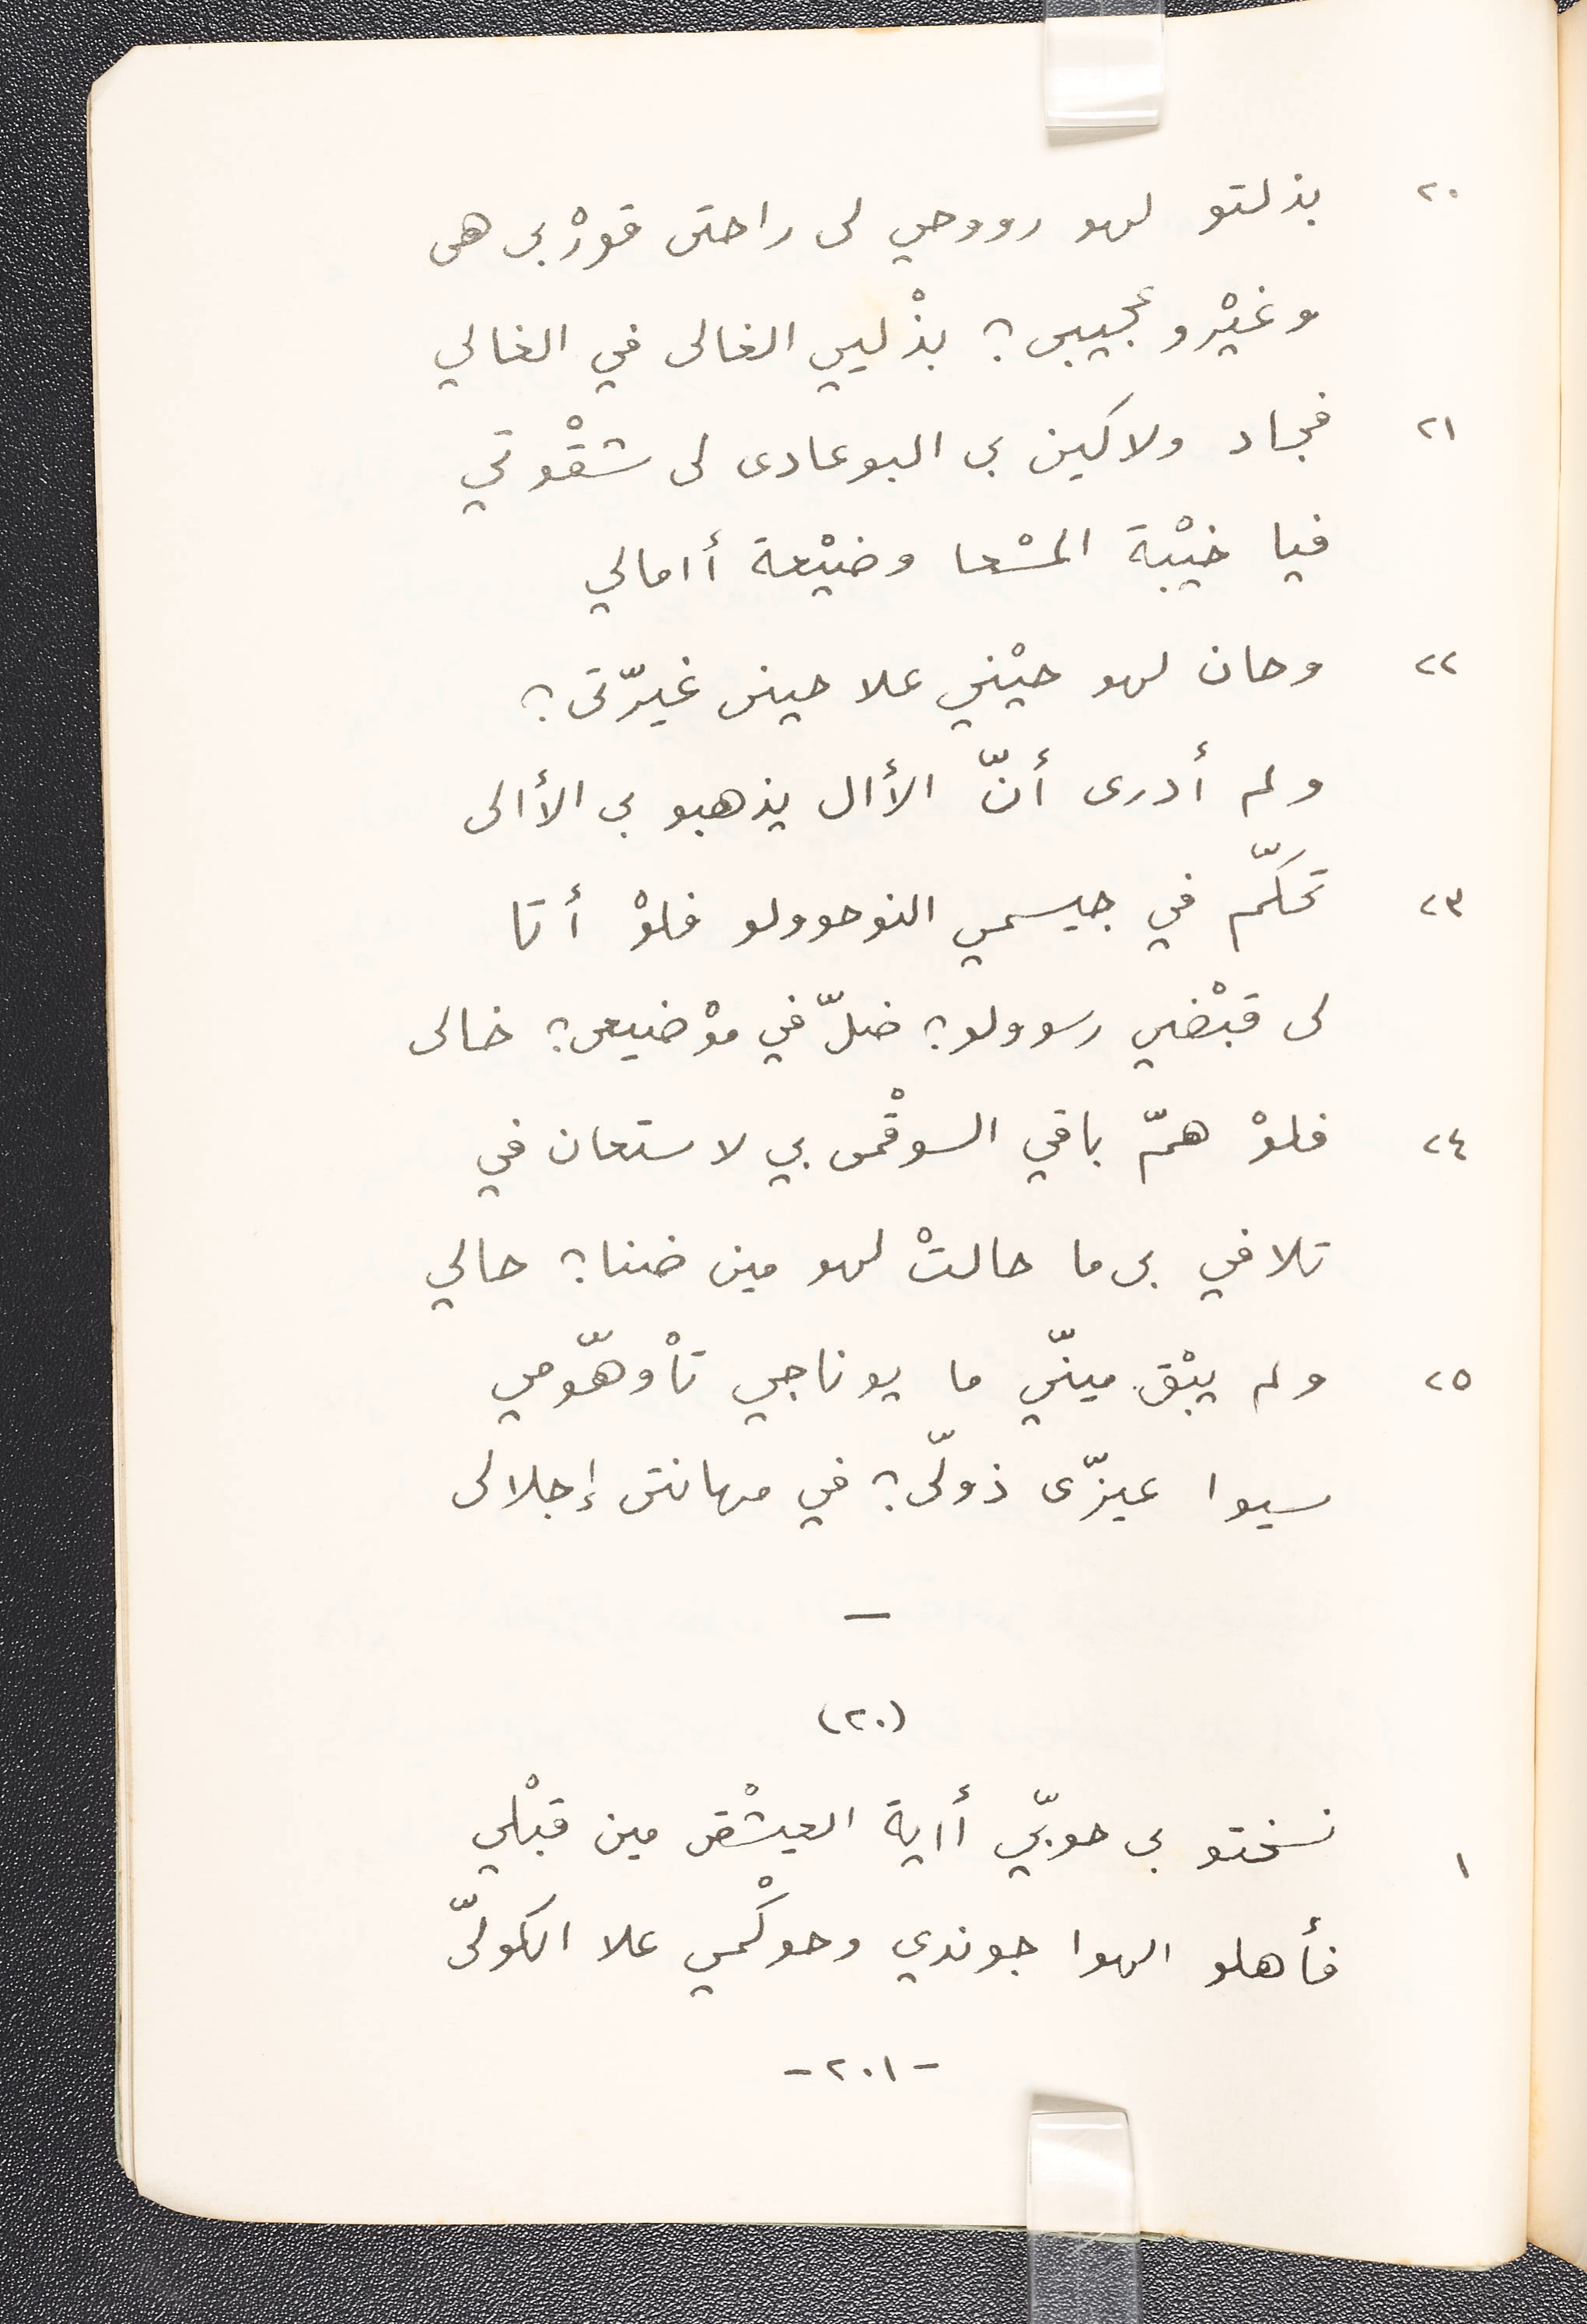 ٢٠ بذلتو لهو رووحي لى راحتى قورْبى هى
وغيْرو عجيبى؟ بذْليي الغالى في الغالي
٢١ فجاد ولاكين بى البوعادى لى شقْوتي
فيا خيْبة المسْعا وضيْعة أامالي
٢٢ وحان لهو حيْني علا حينى غيرّتى؟
ولم أدرى أنّ الأال يذهبو بى الأالى
٢٣ تحكّم في جيسمي النوحوولو فلوْ أتا
لى قبْضي رسوولو؟ ضلّ في موْضيعى؟ خالى
٢٤ فلوْ همّ باقي السوقْمى بي لاستعان في
تلافي بى ما حالتْ لهو مين ضنا؟ حالي
٢٥ ولم يبْق مينّي ما يوناجي تاْوهّومي
سيوا عيزّى ذولّى؟ في مهانتى إجلالى
—
(٢٠)
١ نسختو بى حوبّي أاية العيشْقى مين قبْلي
فأهلو الهوا جوندي وحوكْمي علا الكولّى
- ٢٠١ -